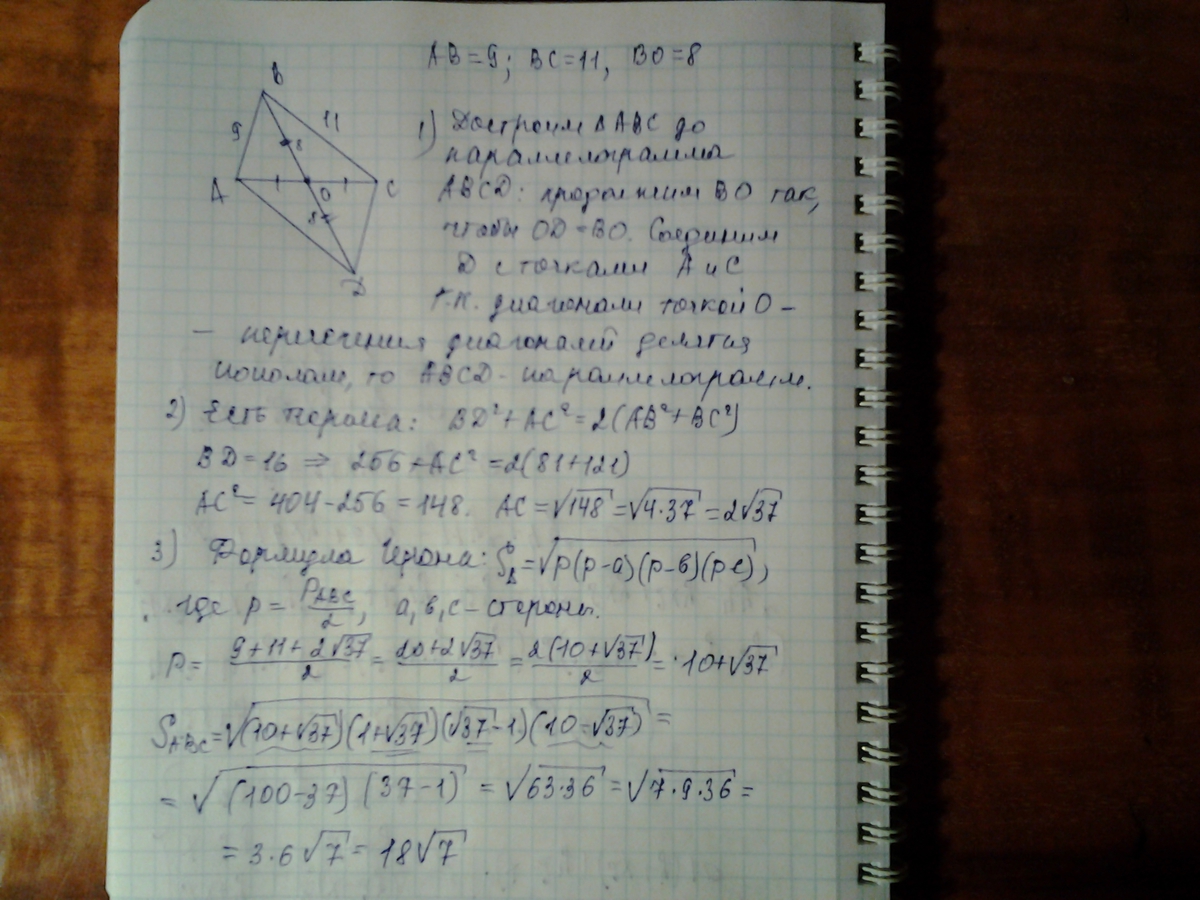 AB=9; BC=11, BO=8
B
9
11
8
A
O
C
8
D
1) Достроим ΔABC до
параллелограмма
ABCD: продолжим BO так,
чтобы OD=BO. Соединим
D с точками A и C
т.к. диагонали точкой O -
- пересечения диагоналей делятся
пополам, то ABCD - параллелограмм.
2) Есть теорема: BD²+AC²=2(AB²+BC²)
BD=16 ⇒ 256+AC²=2(81+121)
AC²=404-256=148. AC=√148=√4·37=2√37
3) Формула Герона: S_Δ=√p(p-a)(p-в)(p-c),
где p=P_ABC/2, a,в,c-стороны.
P=(9+11+2√37)/2=(20+2√37)/2=2(10+√37)/2=10+√37
S_ABC=√(10+√37)(1+√37)(√37-1)(10-√37)=
=√(100-37)(37-1)=√63·36=√7·9·36=
=3·6√7=18√7